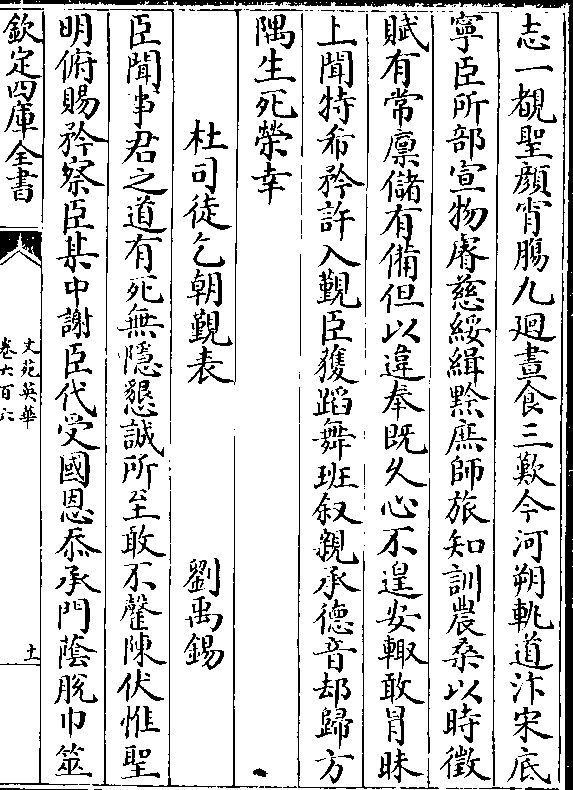 志一覩聖顔宵腸九廻晝食三歎今河朔軌道汴宋底
寧臣所部宣物膺慈綏緝黔庶師旅知訓農桑以時徴
賦有常廪儲有備但以違奉既久心不遑安輙敢冐昧
上聞特希矜許入覲臣獲蹈舞班叙親承德音却歸方
隅生死榮幸
杜司徒乞朝覲表　劉禹錫
臣聞事君之道有死無隱懇誠所至敢不罄陳伏惟聖
明俯賜矜察臣某中謝臣代受國恩忝承門蔭脫巾筮
欽定四庫全書
文苑英華
卷六百六
土